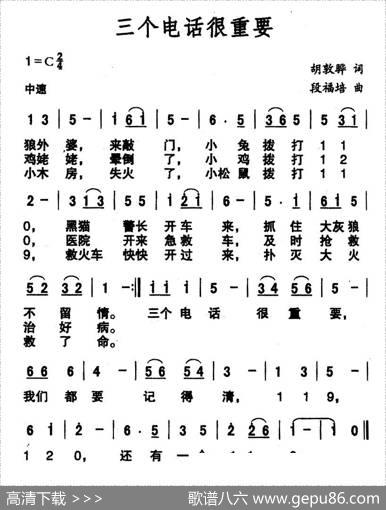 三个电话很重要
1=C 2/4
胡敦骅 词
中速
段福培 曲
1 3 | 5 - | i 6i | 5 - | i 65 | 35 02 | 5 5 | 531 |
狼外 婆, 来敲 门, 小 兔 拨打 1 1
鸡姥 姥, 晕倒 了, 小 鸡 拨打 1 2
小木 房, 失火 了, 小松 鼠 拨打 1 1
2 - | 313 | 55 | 121 | 6 - | 5 5 | 615 |
0, 黑猫 警长 开车 来, 抓住 大灰狼
0, 医院 开来 急救 车, 及时 抢救
9, 救火车 快快 开过 来, 扑灭 大火
52 32 | 1 - :| i i i | 5 - | 34 56 | 5 - |
不 留 情。 三个 电 话 很 重 要,
治 好 病。
救 了 命。
66 6 | 4 - | 56 54 | 3 - | i i | 5 - |
我们 都 要 记 得 清, 1 1 9,
1 2 0, 还有 一
高清下载 >>>
歌谱八六 www.gepu86.com